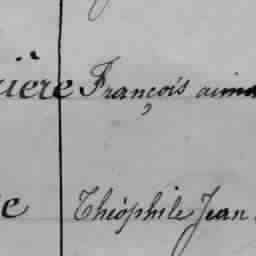 ière François aimé
e Théophile Jean